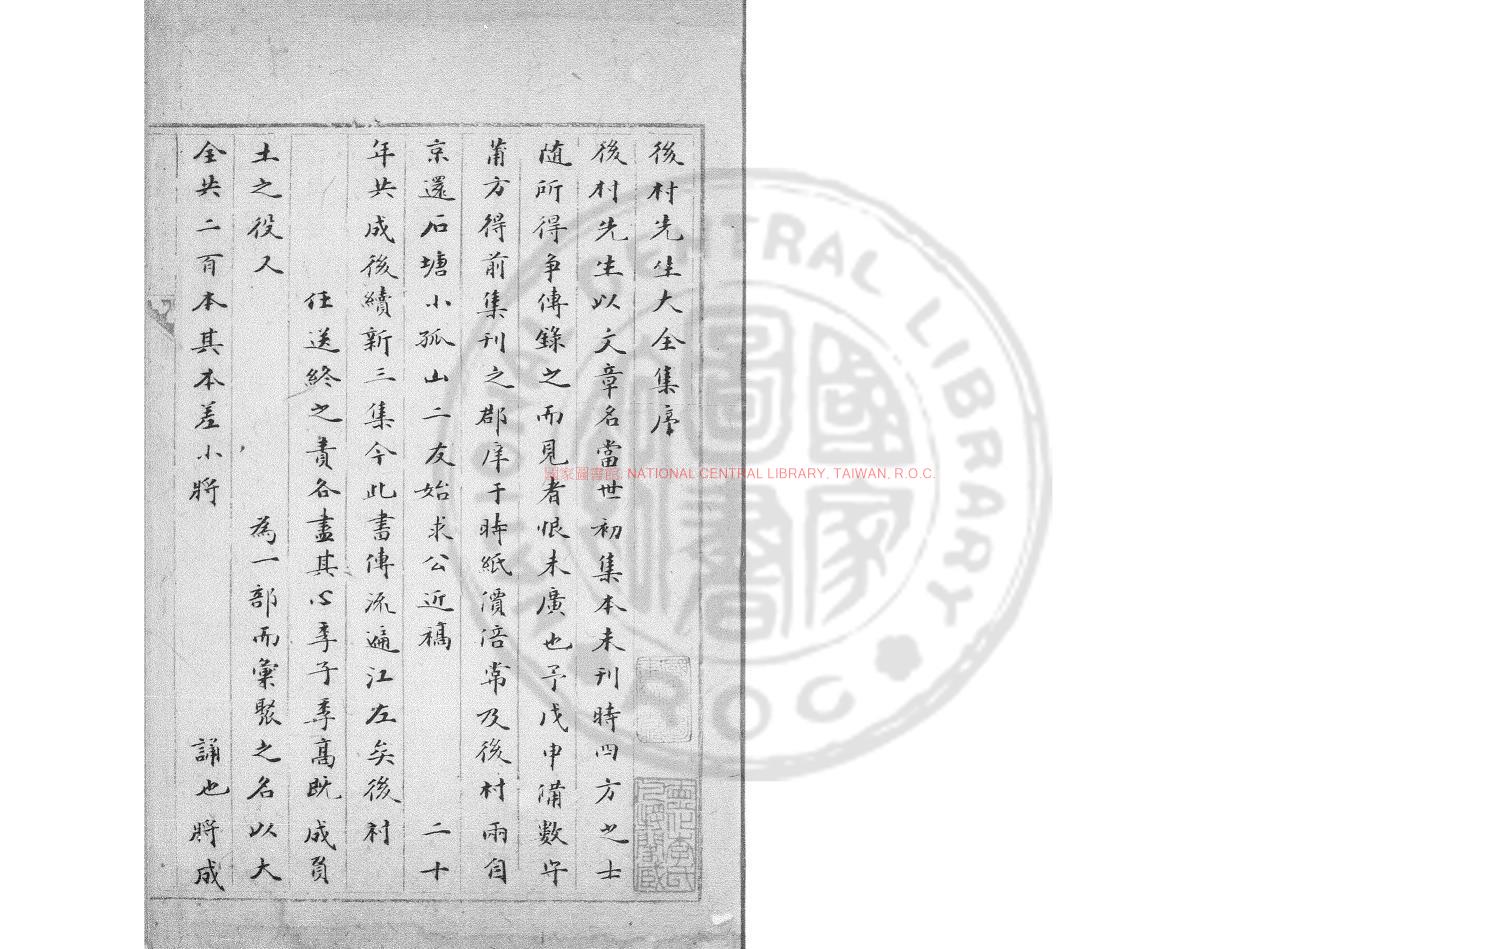 後村先生大全集序
後村先生以文章名當世初集本未刊時四方之士
随所得爭傳錄之而見者恨未廣也予戊申備數守
莆方得前集刊之郡庠于時紙價倍常及後村兩自
京還石塘小孤山二友始求公近稿 二十
年共成後續新三集今此書傳流遍江左矣後村
任送終之責各盡其心季子季高既成負
土之役又 為一部而彙聚之名以大
全共二百本其本差小將 誦也將成
國家圖書館, NATIONAL CENTRAL LIBRARY, TAIWAN, R.O.C.
NATIONAL CENTRAL LIBRARY
ROC